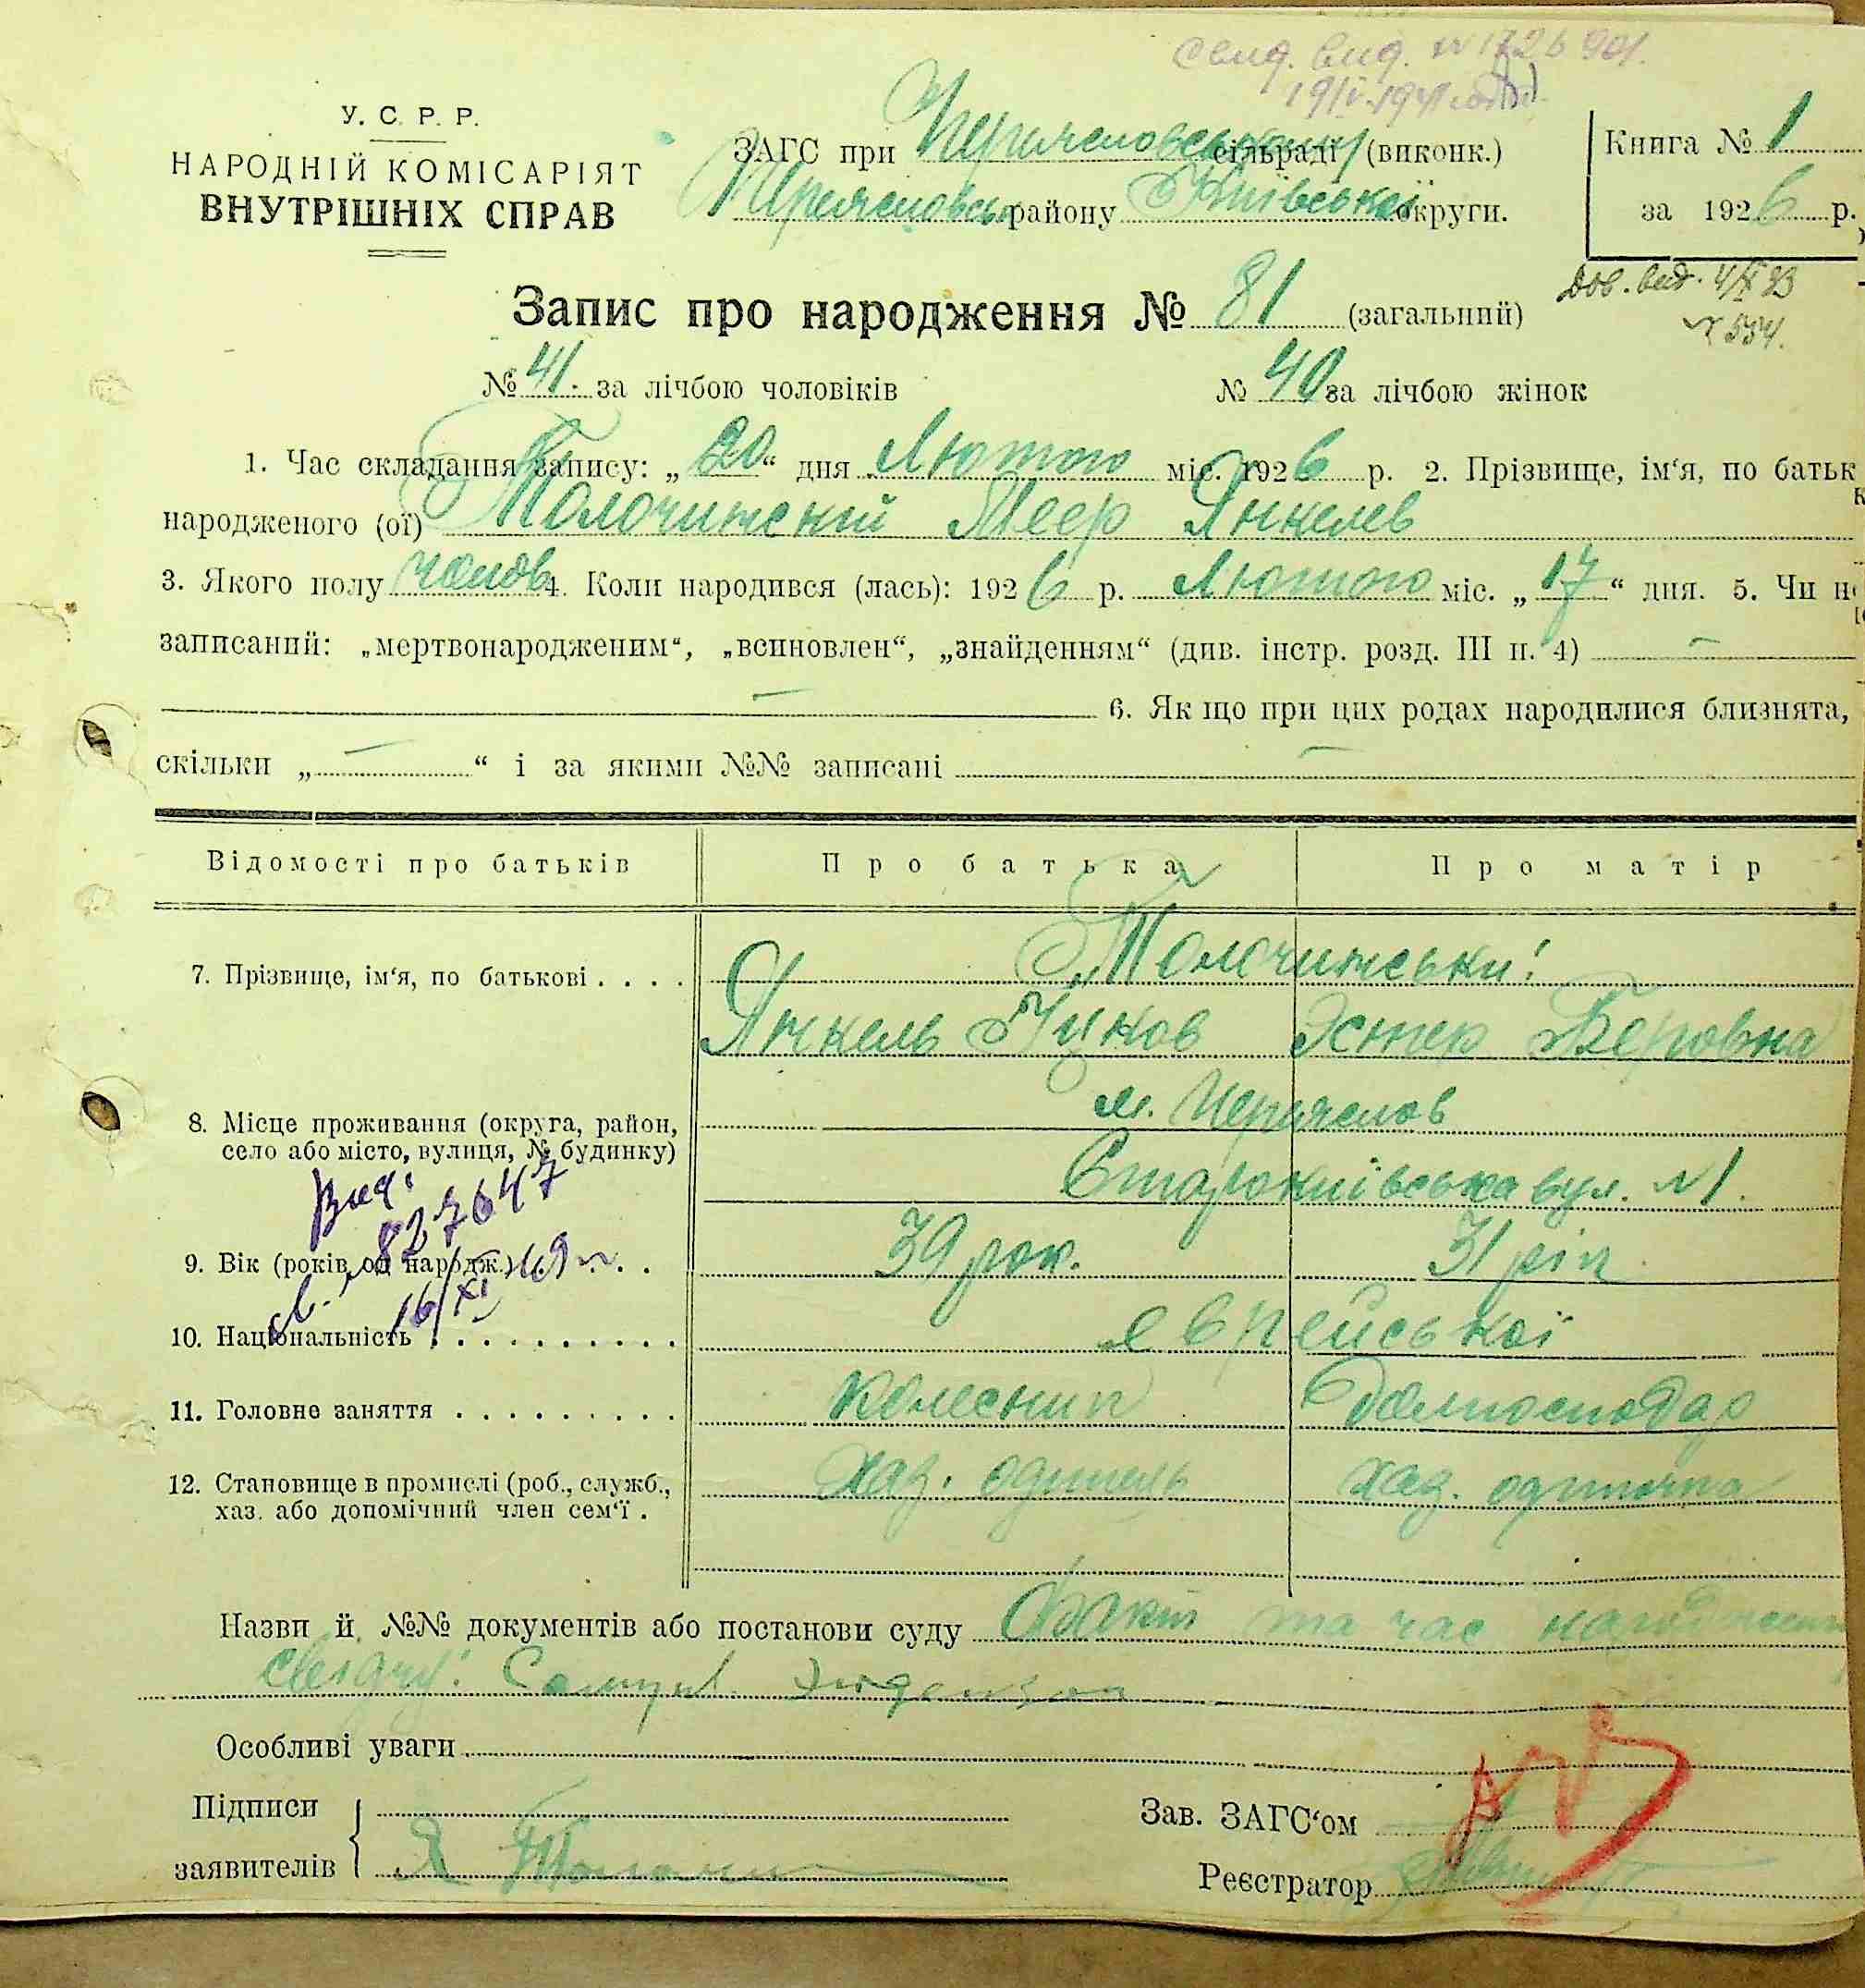 У. С. Р. Р.
НАРОДНІЙ КОМІСАРІЯТ
ВНУТРІШНІХ СПРАВ
ЗАГС при Переяславському сільраді (виконк.)
Переяславськ району Київської округи.
Книга № 1
за 1926 р.
Дов. вид. 4/X 23
№ 534.
Запис про народження № 81 (загальний)
№ 41. за лічбою чоловіків № 40 за лічбою жінок
1. Час складання запису: „20“ дня Лютого міс. 1926 р. 2. Прізвище, ім‘я, по батьк
народженого (ої) Толочинскій Меер Янкелев
3. Якого полу чолов 4. Коли народився (лась): 1926 р. Лютого міс. „17“ дня. 5. Чи н
записаний: „мертвонародженим“, „всиновлен“, „знайденням“ (див. інстр. розд. III п. 4) –
– 6. Як що при цих родах народилися близнята,
скільки „ – “ і за якими №№ записані –
Відомості про батьків Про батька Про матір
7. Прізвище, ім‘я, по батькові . . . . Толочинськи!
Янкель Ицков Эстер Беровна
8. Місце проживання (округа, район, м. Переяслов
село або місто, вулиця, № будинку) Старокиївська вул. №1.
Вид.
827647
9. Вік (років од народж.) 39 рок. 31 рік
16/XI 69
10. Національність . . . . . . . . . . Єврейської
11. Головне заняття . . . . . . . . . колесник домогосподар
12. Становище в промислі (роб., служб., хаз. одинець хаз. одиночка
хаз. або допомічний член сем‘ї .
Назви й №№ документів або постанови суду Факт та час народження
свідчу: Самуил
Особливі уваги
Підписи
заявителів Я Толочин
Зав. ЗАГС‘ом
Реєстратор